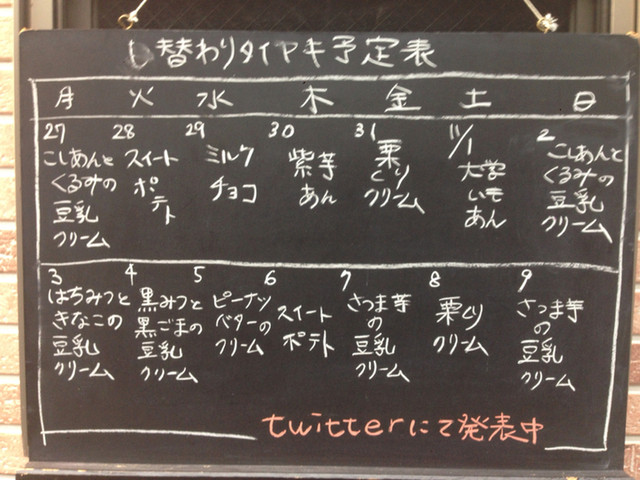 日替わりタイヤキ予定表
月 火 水 木 金 土 日
27 28 29 30 31 11/1 2
こしあんと
くるみの
豆乳
クリーム
スイート
ポ
テト
ミルク
チョコ
紫芋
あん
栗
くり
クリーム
大学
いも
あん
こしあんと
くるみの
豆乳
クリーム
3 4 5 6 7 8 9
はちみつと
きなこの
豆乳
クリーム
黒みつと
黒ごまの
豆乳
クリーム
ピーナッツ
バターの
クリーム
スイート
ポテト
さつま芋
の
豆乳
クリーム
栗くり
クリーム
さつま芋
の
豆乳
クリーム
twitterにて発表中